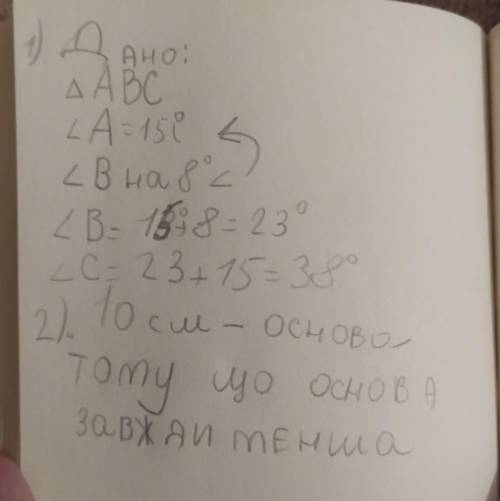 1) Дано:
△ABC
∠A=15°
∠B на 8° <
∠B= 15°+8=23°
∠C= 23+15=38°
2). 10 см – основа
тому що основа
завжди менша